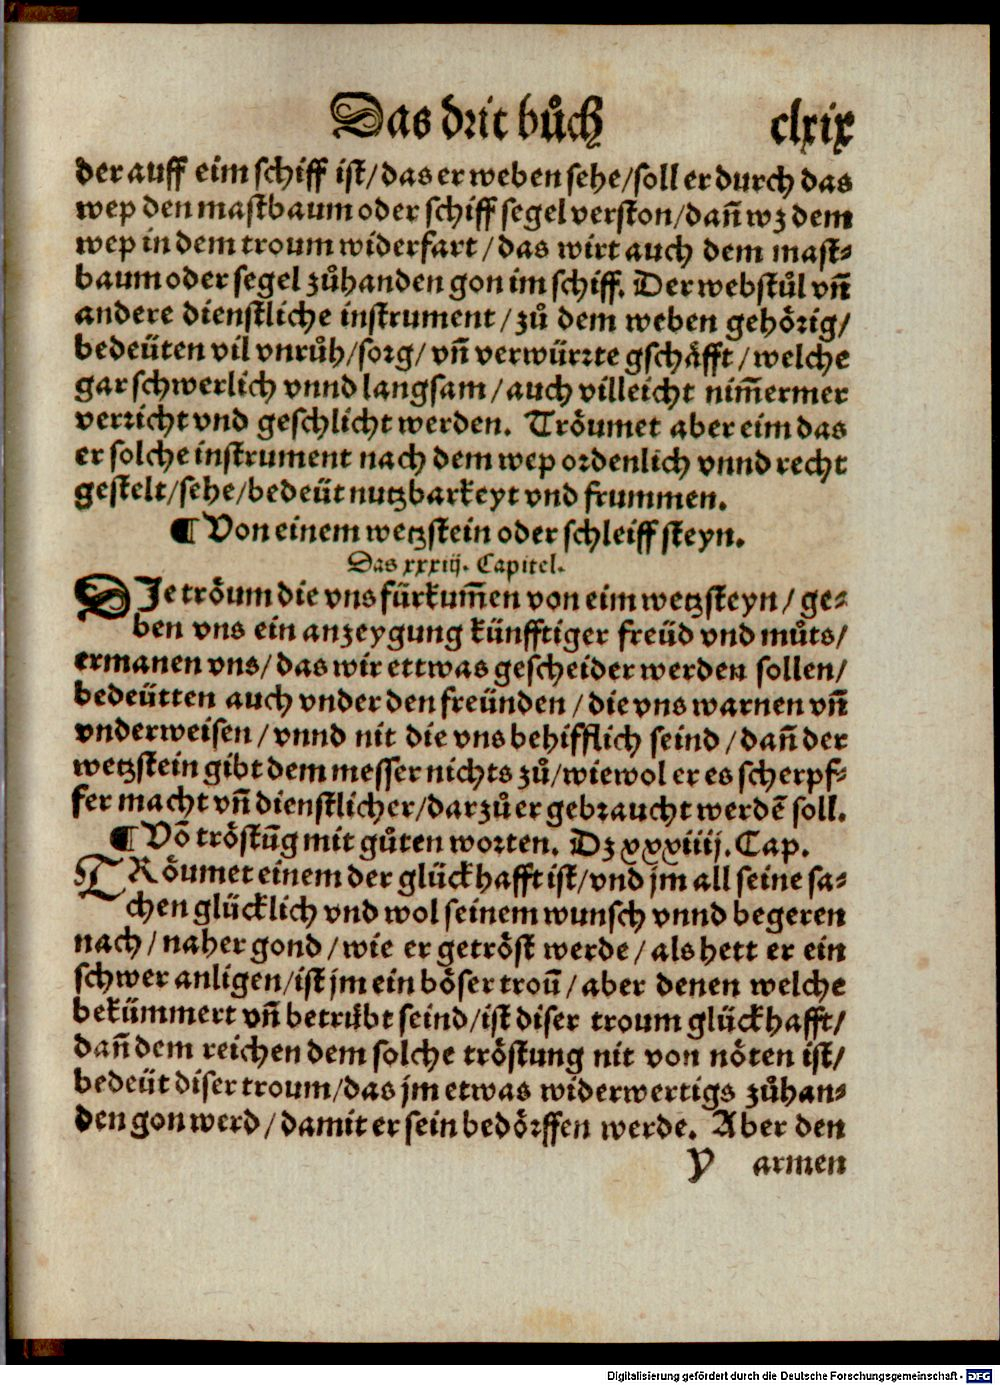 Das drit bůch clxix
der auff eim schiff ist/das er weben sehe/soll er durch das
wep den mastbaum oder schiff segel verston/dañ wz dem
wep in dem troum widerfart/das wirt auch dem mast-
baum oder segel zůhanden gon im schiff. Der webstůl vñ
andere dienstliche instrument/zů dem weben gehörig/
bedeüten vil vnrůh/sorg/vñ verwürrte gschäfft/welche
gar schwerlich vnnd langsam/auch villeicht nim̃ermer
verricht vnd geschlicht werden. Tröumet aber eim das
er solche instrument nach dem wep ordenlich vnnd recht
gestelt/sehe/bedeüt nutzbarkeyt vnd frummen.
¶ Von einem wetzstein oder schleiff steyn.
Das xxxiij. Capitel.
DJe tröum die vns fürkum̃en von eim wetzsteyn/ge-
ben vns ein anzeygung künfftiger freüd vnd můts/
ermanen vns/das wir ettwas gescheider werden sollen/
bedeütten auch vnder den freünden/die vns warnen vñ
vnderweisen/vnnd nit die vns behifflich seind/dañ der
wetzstein gibt dem messer nichts zů/wiewol er es scherpf-
fer macht vñ dienstlicher/darzů er gebraucht werdẽ soll.
¶ Võ tröstũg mit gůten worten. Dz xxxiiij. Cap.
TRöumet einem der glückhafft ist/vnd jm all seine sa-
chen glücklich vnd wol seinem wunsch vnnd begeren
nach/naher gond/wie er getröst werde/als hett er ein
schwer anligen/ist jm ein böser troũ/aber denen welche
bekümmert vñ betrübt seind/ist diser troum glückhafft/
dañ dem reichen dem solche tröstung nit von nöten ist/
bedeüt diser troum/das jm etwas widerwertigs zůhan-
den gon werd/damit er sein bedörffen werde. Aber den
Y armen
Digitalisierung gefördert durch die Deutsche Forschungsgemeinschaft - DFG